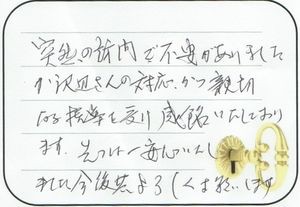 突然の訪問で不安がありました
が沢辺さんの対応、かつ親切
なる接客を受け感銘いたしており
ます。先づは一安心いたし
ました今後共よろしくお願います